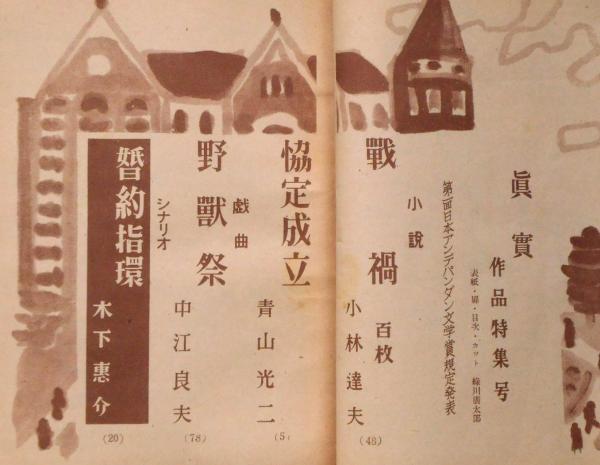 眞實
作品特集号
表紙・扉・目次・カット
第一回日本アンデパンダン文学賞規定発表
小説
戰禍
百枚
小林達夫
(48)
協定成立
青山光二
(5)
戯曲
野獸祭
中江良夫
(78)
シナリオ
婚約指環
木下惠介
(20)